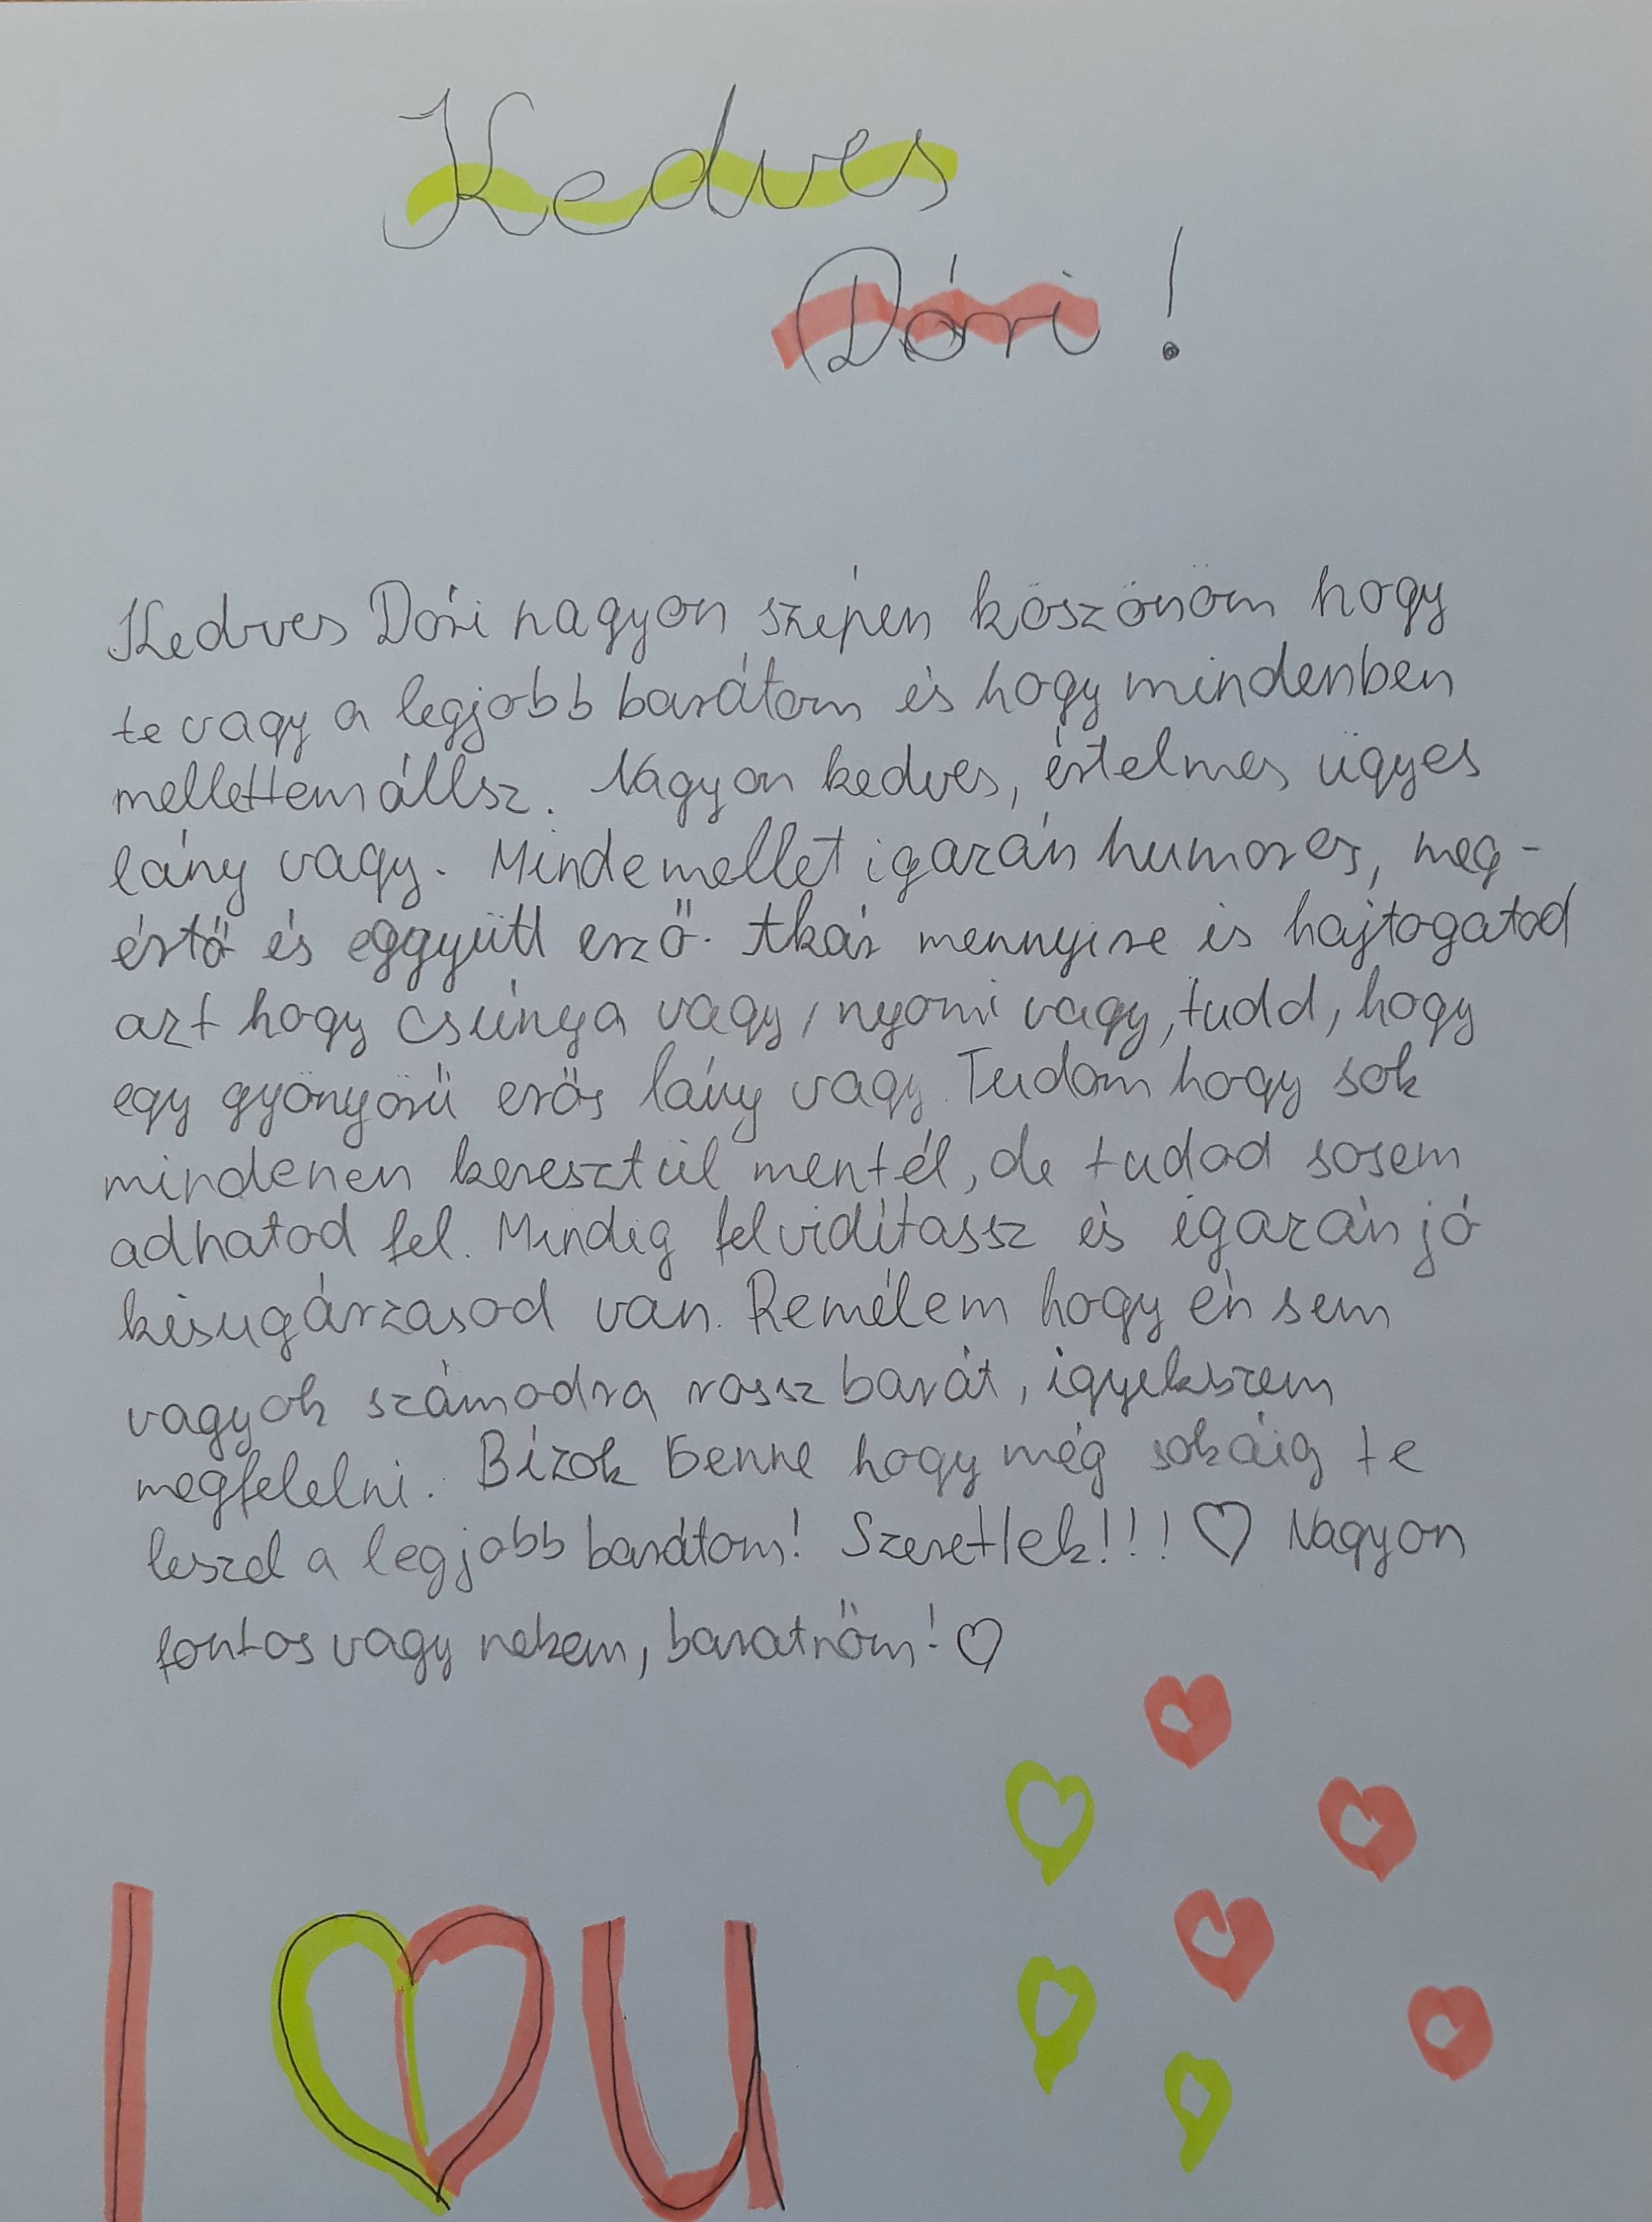 Kedves
Dóri!
Kedves Dóri nagyon szépen köszönöm hogy
te vagy a legjobb barátom és hogy mindenben
mellettem állsz. Nagyon kedves, értelmes ügyes
lány vagy. Mindemellet igazán humoros, meg-
értő és eggyütt erző. Akár mennyire is hajtogatod
azt hogy csúnya vagy, nyomi vagy, tudd, hogy
egy gyönyörű erős lány vagy. Tudom hogy sok
mindenen keresztül mentél, de tudod sosem
adhatod fel. Mindig felvidítassz és igazán jó
kisugárzasod van. Remélem hogy én sem
vagyok számodra rossz barát, igyekszem
megfelelni. Bízok benne hogy még sokáig te
leszel a legjobb barátom! Szeretlek!!! ♡ Nagyon
fontos vagy nekem, baratnőm! ♡
I ♡ U